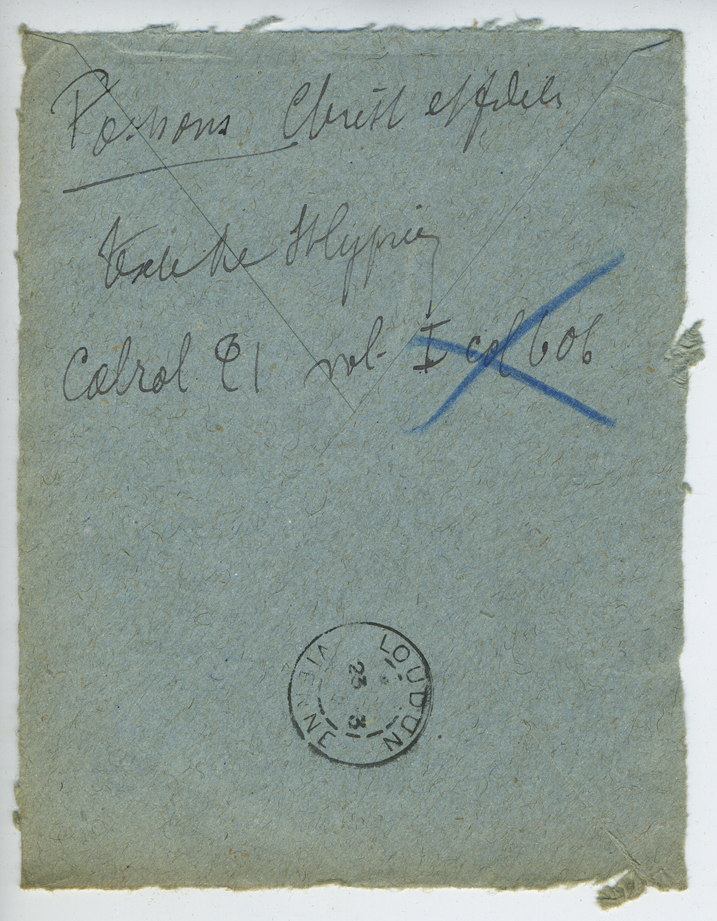 Poissons Christ et fidèles
Texte de
Cabrol vol. I col 606
LOUDUN
23 3
VIENNE